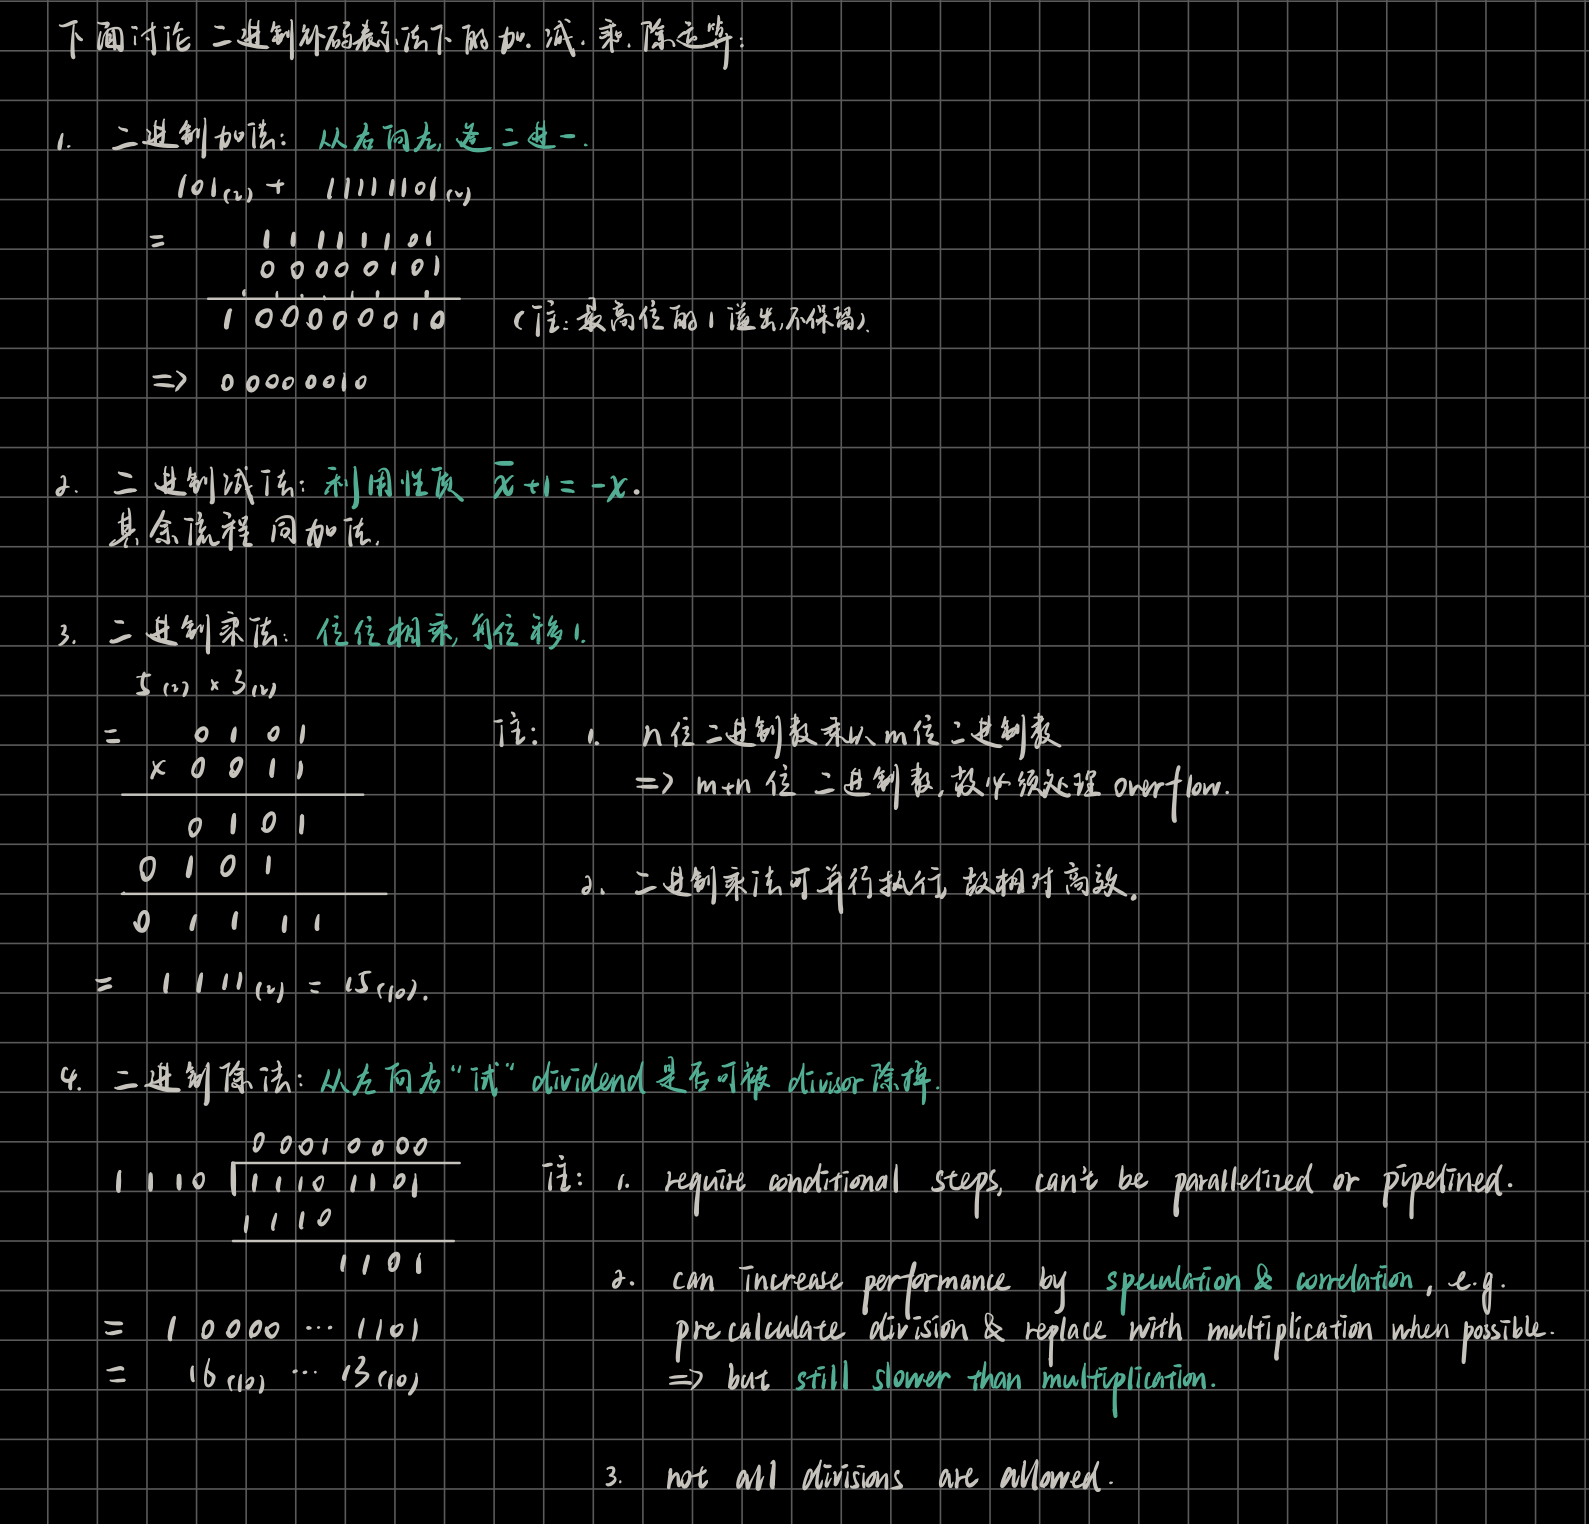 下面讨论 二进制补码表示法下的加.减.乘.除运算:
1. 二进制加法: 从右向左,逢二进一.
101(2) + 11111101(2)
= 1 1 1 1 1 1 0 1
0 0 0 0 0 1 0 1
1 0 0 0 0 0 0 1 0 (注:最高位的1溢出,不保留).
=> 0 0 0 0 0 0 1 0
2. 二进制减法: 利用性质 x̄+1 = -x.
其余流程同加法.
3. 二进制乘法: 位位相乘,每位移1.
5(2) × 3(2)
= 0 1 0 1
× 0 0 1 1
0 1 0 1
0 1 0 1
0 1 1 1 1
= 1 1 1 1 (2) = 15(10).
注: 1. n位二进制数乘以m位二进制数
=> m+n 位 二进制数,故必须处理 overflow.
2. 二进制乘法可并行执行,故相对高效.
4. 二进制除法: 从左向右“试” dividend 是否可被 divisor 除掉.
0 0 0 1 0 0 0 0
1 1 1 0 1 1 1 0 1 1 0 1
1 1 1 0
1 1 0 1
= 1 0 0 0 0 ··· 1 1 0 1
= 16(10) ··· 13(10)
注: 1. require conditional steps, can't be parallelized or pipelined.
2. can increase performance by speculation & correlation, e.g.
precalculate division & replace with multiplication when possible.
=> but still slower than multiplication.
3. not all divisions are allowed.